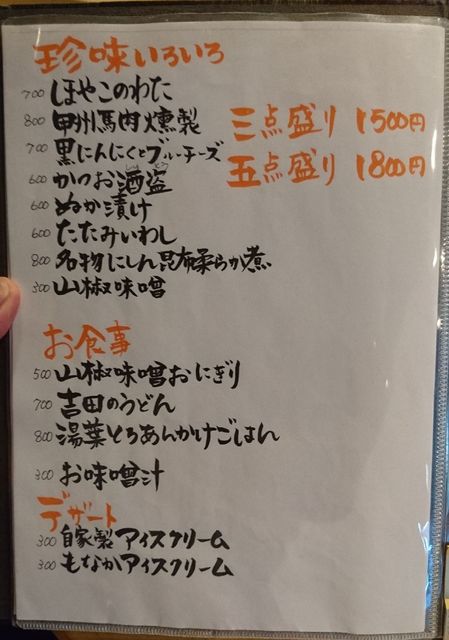 珍味いろいろ
700 ほやこのわた
800 甲州馬肉燻製
700 黒にんにくとブルーチーズ
600 かつお酒盗
600 ぬか漬け
600 たたみいわし
800 名物にしん昆布柔らか煮
300 山椒味噌
三点盛り 1500円
五点盛り 1800円
お食事
500 山椒味噌おにぎり
700 吉田のうどん
800 湯葉とろあんかけごはん
300 お味噌汁
デザート
300 自家製アイスクリーム
300 もなかアイスクリーム